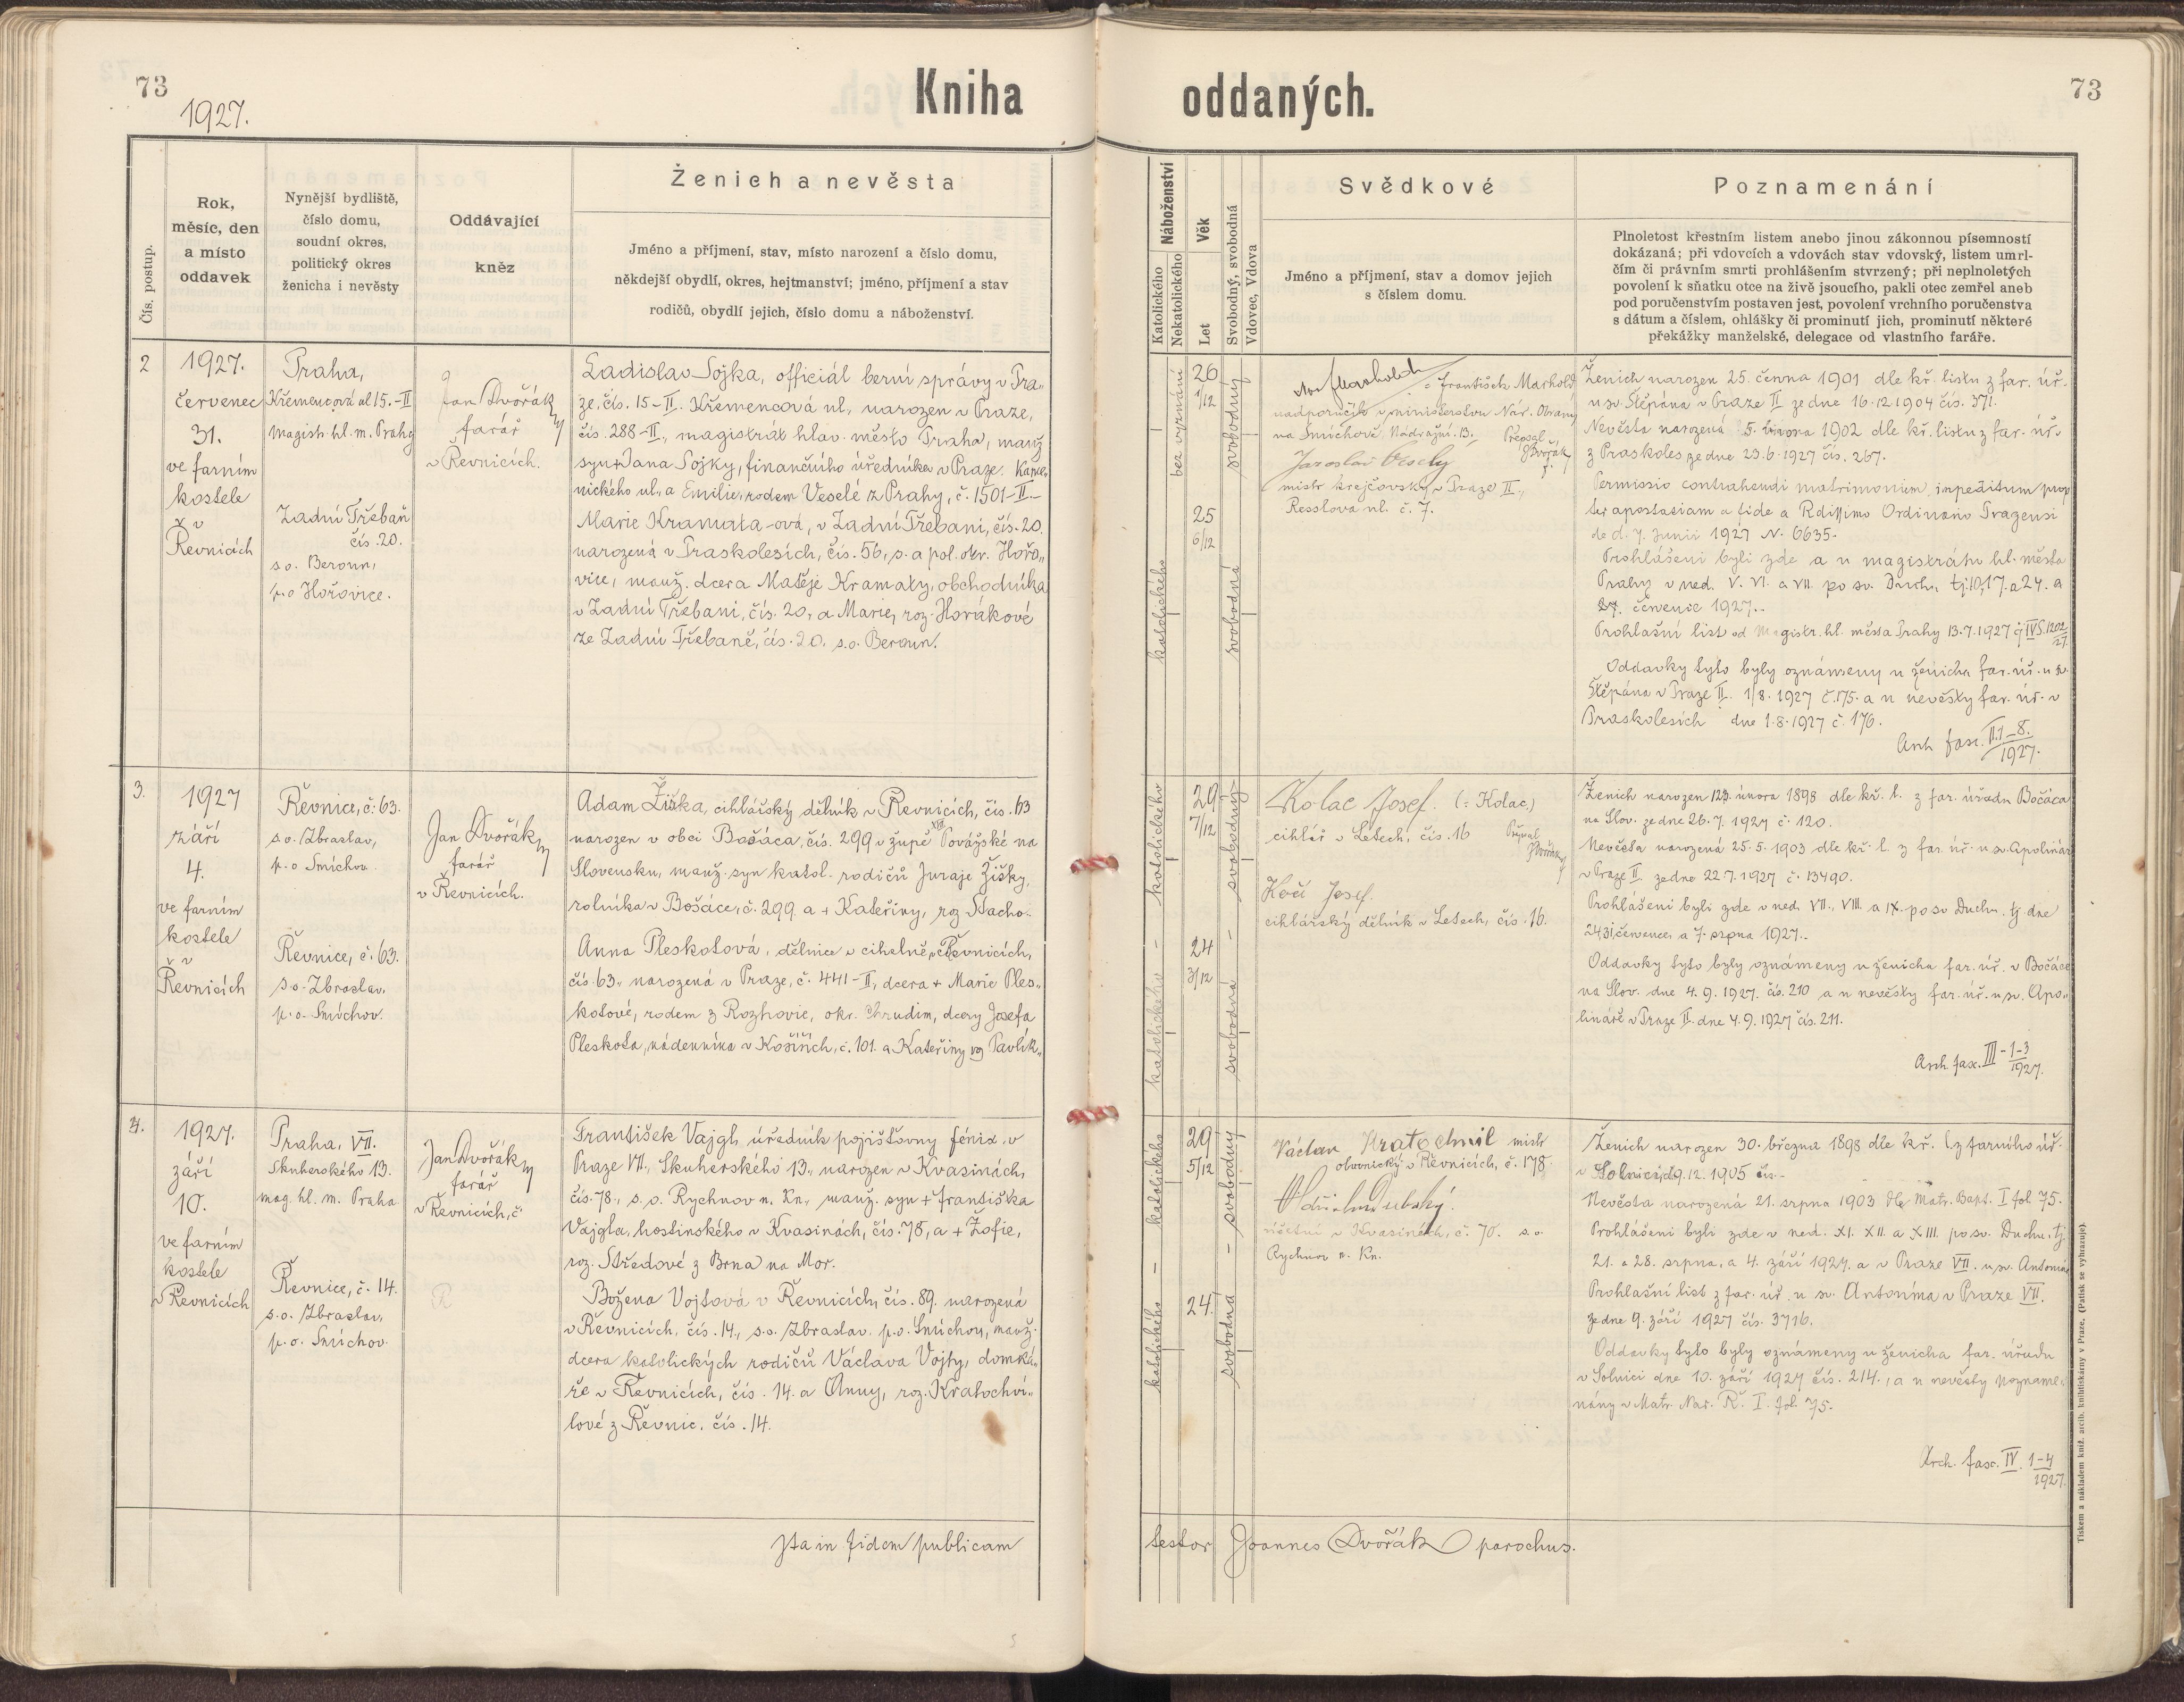 73
1927.
Kniha oddaných.
73
Čís. postup.
Rok, měsíc, den a místo oddavek
Nynější bydliště, číslo domu, soudní okres, politický okres ženicha i nevěsty
Oddávající kněz
Ženich a nevěsta
Jméno a příjmení, stav, místo narození a číslo domu,
někdejší obydlí, okres, hejtmanství; jméno, příjmení a stav
rodičů, obydlí jejich, číslo domu a náboženství.
Náboženství
Katolického
Nekatolického
Věk
Let
Svobodný, svobodná
Vdovec, Vdova
Svědkové
Jméno a příjmení, stav a domov jejich
s číslem domu.
Poznamenání
Plnoletost křestním listem anebo jinou zákonnou písemností
dokázaná; při vdovcích a vdovách stav vdovský, listem umrl-
čím či právním smrti prohlášením stvrzený; při neplnoletých
povolení k sňatku otce na živě jsoucího, pakli otec zemřel aneb
pod poručenstvím postaven jest, povolení vrchního poručenstva
s dátum a číslem, ohlášky či prominutí jich, prominutí některé
překážky manželské, delegace od vlastního faráře.
2
1927.
červenec
31.
ve farním
kostele
v
Řevnicích
Praha,
Křemencová ul 15.-II
magistr. hl. m. Prahy
Zadní Třebaň
čís. 20.
s.o. Beroun,
p.o Hořovice.
Jan Dvořák
farář
v Řevnicích.
Ladislav Sojka, officiál berní správy v Pra-
ze, čís. 15-II. Křemencová ul., narozen v Praze,
čís. 288-II., magistrát hlav. město Praha, manž.
syn + Jana Sojky, finančního úředníka v Praze.
nického ul. a Emilie, rodem Veselé z Prahy, č. 1501-II.-
Marie Kramata-ová, v Zadní Třebani, čís. 20.
narozená v Praskolesích, čís. 56, s. a pol. okr. Hořo-
vice, manž. dcera Matěje Kramaty, obchodníka
v Zadní Třebani, čís. 20, a Marie, roz. Horákové
ze Zadní Třebaně, čís. 20. s.o. Beroun.
bez vyznání
katolického
26
1/12
25
6/12
svobodný
svobodná
František Markold
nadporučík v ministerstvu Nár. Obrany
na Smíchově, Nádražní 13.
Přepsal
Dvořák
Jaroslav Veselý
mistr krejčovský v Praze II.,
Resslova ul. č. 7.
Ženich narozen 25. června 1901 dle kř. listu z far. úř.
u sv. Štěpána v Praze II ze dne 16.12.1904 čís. 371.
Nevěsta narozená 5. února 1902 dle kř. listu z far. úř.
z Praskoles ze dne 23.6.1927 čís. 267.
Permissio contrahendi matrimonium inpeditum prop
ter apostasiam a fide a Rdissimo Ordinario Pragensi
de d. 7. Junii 1927 N. 6635.
Prohlášeni byli zde a u magistrátu hl. města
Prahy v ned. V. VI. a VII. po sv. Duchu, tj. 10, 17. a 24. a
července 1927.
Prohlašní list od Magistr. hl. města Prahy 13.7.1927 čj IVS.1202/27.
Oddavky tyto byly oznámeny u ženicha far. úř. u sv.
Štěpána v Praze II. 1/8. 1927 č. 175. a u nevěsty far. úř. v
Praskolesích dne 1.8.1927 č. 176.
Arch fasc. II. 1-8.
1927.
3.
1927
září
4.
ve farním
kostele
v
Řevnicích
Řevnice, č. 63.
s.o. Zbraslav,
p.o Smíchov.
Řevnice, č. 63.
s.o. Zbraslav,
p.o. Smíchov.
Jan Dvořák
farář
v Řevnicích.
Adam Žiška, cihlářský dělník v Řevnicích, čís. 63
narozen v obci Bošáca, čís. 299 v župě Považské na
Slovensku, manž. syn katol. rodičů Juraje Žišky,
rolníka v Bošáce, č. 299 a + Kateřiny, roz Stacho.
Anna Pleskotová, dělnice v cihelně v Řevnicích,
čís 63., narozená v Praze, č. 441-II, dcera + Marie Ples-
kotové, rodem z Rozhovic, okr. Chrudim, dcery Josefa
Pleskota, nádenníka v Košířích, č. 101. a Kateřiny roz Pavlík-
katolického
katolického
29
7/12
24
3/12
svobodný
svobodná
Kolac Josef. (: Kolac.)
cihlář v Letech, čís. 16
Dvořák
Kočí Josef.
cihlářský dělník v Letech, čís. 16.
Ženich narozen února 1898 dle kř. l. z far. úřadu Bočáca
na Slov. ze dne 26.7.1927 č. 120.
Nevěsta narozená 25.5.1903 dle kř. l. z far. úř. u sv. Apolináře
v Praze II. ze dne 22.7.1927 č. 13490.
Prohlášeni byli zde v ned. VII., VIII. a IX. po sv Duchu. tj dne
24, 31, července, a 7. srpna 1927..
Oddavky tyto byly oznámeny u ženicha far. úř. v Bočáce
na Slov. dne 4.9.1927. čís. 210 a u nevěsty far. úř. u sv. Apo-
lináře v Praze II. dne 4.9.1927 čís. 211.
Arch fasc. III - 1-3
1927.
4.
1927.
září
10.
ve farním
kostele
v Řevnicích
Praha, VII.
Skuherského 13.
mag. hl. m. Praha
Řevnice, č. 14.
s.o. Zbraslav,
p.o. Smíchov.
Jan Dvořák
farář
v Řevnicích, č.
František Vajgl, úředník pojišťovny fénix, v
Praze VII., Skuherského 13., narozen v Kvasinách,
čís. 78., s.o. Rychnov n. Kn., manž. syn + františka
Vajgla, hostinského v Kvasinách, čís. 78, a + Žofie,
roz. Středové z Brna na Mor.
Božena Vojtová v Řevnicích, čís. 89. narozená
v Řevnicích, čís. 14., s.o. Zbraslav. p.o. Smíchov, manž.
dcera katolických rodičů Václava Vojty, domká-
ře v Řevnicích, čís. 14. a Anny, roz. Kratochví-
lové z Řevnic. čís. 14.
katolického
katolického
29
5/12
24.
svobodný
svobodna
Václav Kratochvíl mistr
obuvnický v Řevnicích, č. 178.
Dubský.
účetní v Kvasinách, č. 70. s.o.
Rychnov n. Kn.
Ženich narozen 30. března 1898 dle kř. l. z farního úř.
v Solnici 12. 1905 čís. -
Nevěsta narozená 21. srpna 1903 dle Matr. Bapt. I fol 75.
Prohlášeni byli zde v ned. XI. XII a XIII. po sv. Duchu, tj.
21. a 28. srpna, a 4. září 1927. a v Praze VII. u sv. Antonína
Prohlašní list z far. úř. u sv. Antonína v Praze VII.
ze dne 9. září 1927 čís. 3716.
Oddavky tyto byly oznámeny u ženicha far. úřadu
v Solnici dne 10. září 1927 čís. 214., a u nevěsty pozname-
nány v Matr. Nar. Ř. I. fol. 75.
Arch. fasc. IV. 1-4
1927.
Ita in fidem publicam testor Joannes Dvořák parochus.
Tiskem a nákladem kníž. arcib. knihtiskárny v Praze. (Patisk se vyhrazuje).